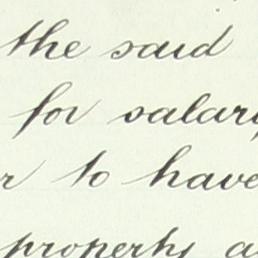 the said
for salary
r to have
property a